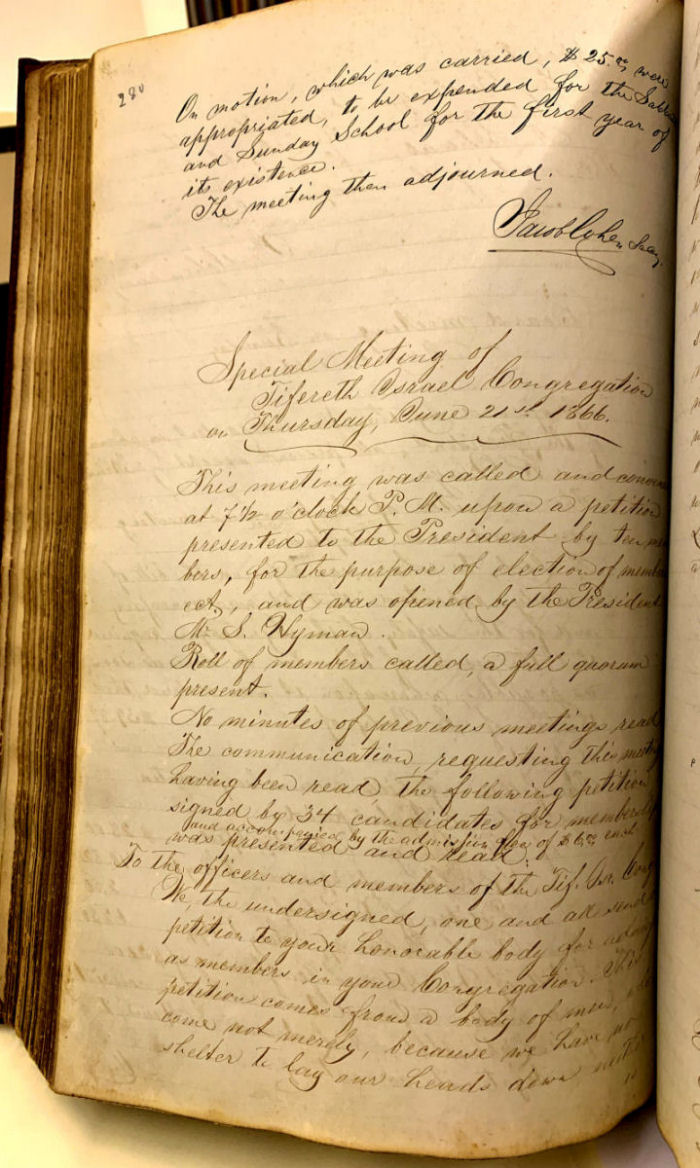 280
On motion, which was carried, $25.00 were
appropriated, to be expended for the
and Sunday School for the first year of
its existence.
The meeting then adjourned.
Jacob Cohen Secy.
Special Meeting of
Tifereth Israel Congregation
on Thursday, June 21st 1866.
This meeting was called and
at 7½ o'clock P. M. upon a petition
presented to the President by ten
bers, for the purpose of election of
ect, and was opened by the President
Mr. S. Hyman.
Roll of members called, a full quorum
present.
No minutes of previous meetings read
The communication, requesting this
having been read the following petition
signed by 34 candidates for
and accompanied by the admission fee of $6.00 each
was presented and read.
To the officers and members of the Tif. Isr.
We the undersigned, one and all send
petition to your honorable body for
as members in your Congregation. This
petition comes from a body of men,
come not merely, because we have no
shelter to lay our heads down